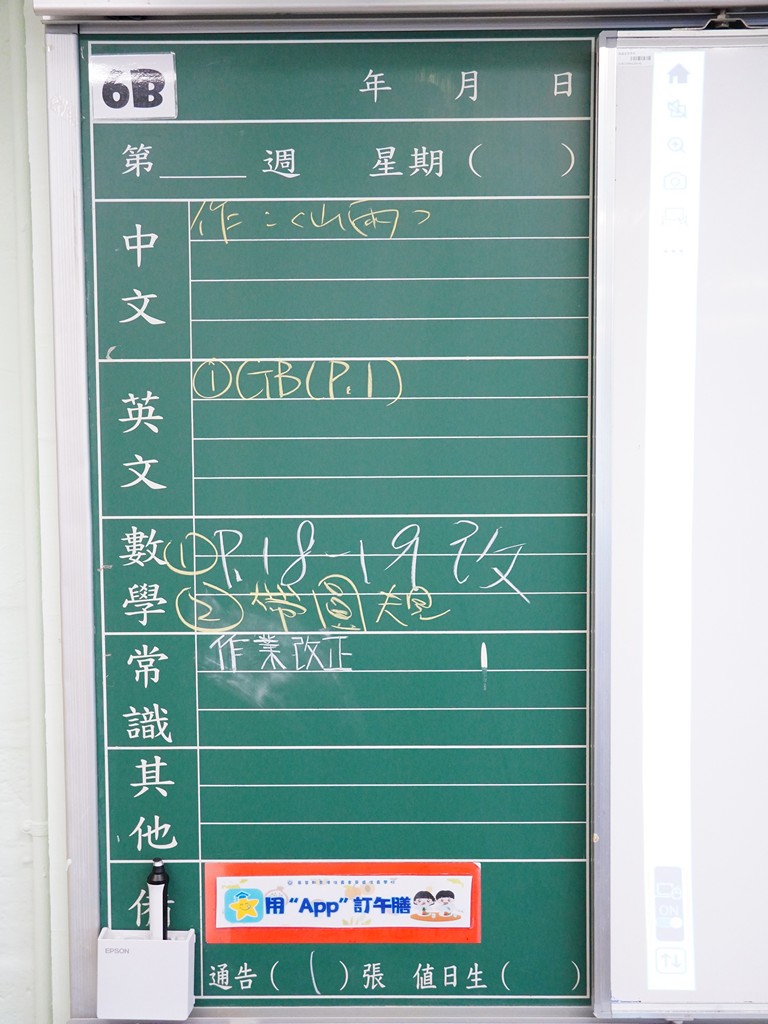 6B
年 月 日
第____週 星期( )
中文
作:〈山雨〉
英文
①GB(P.1)
數學
①P.18-19改
②帶圓規
常識
作業改正
其他
備
用“App”訂午膳
EPSON
通告(1)張 值日生( )